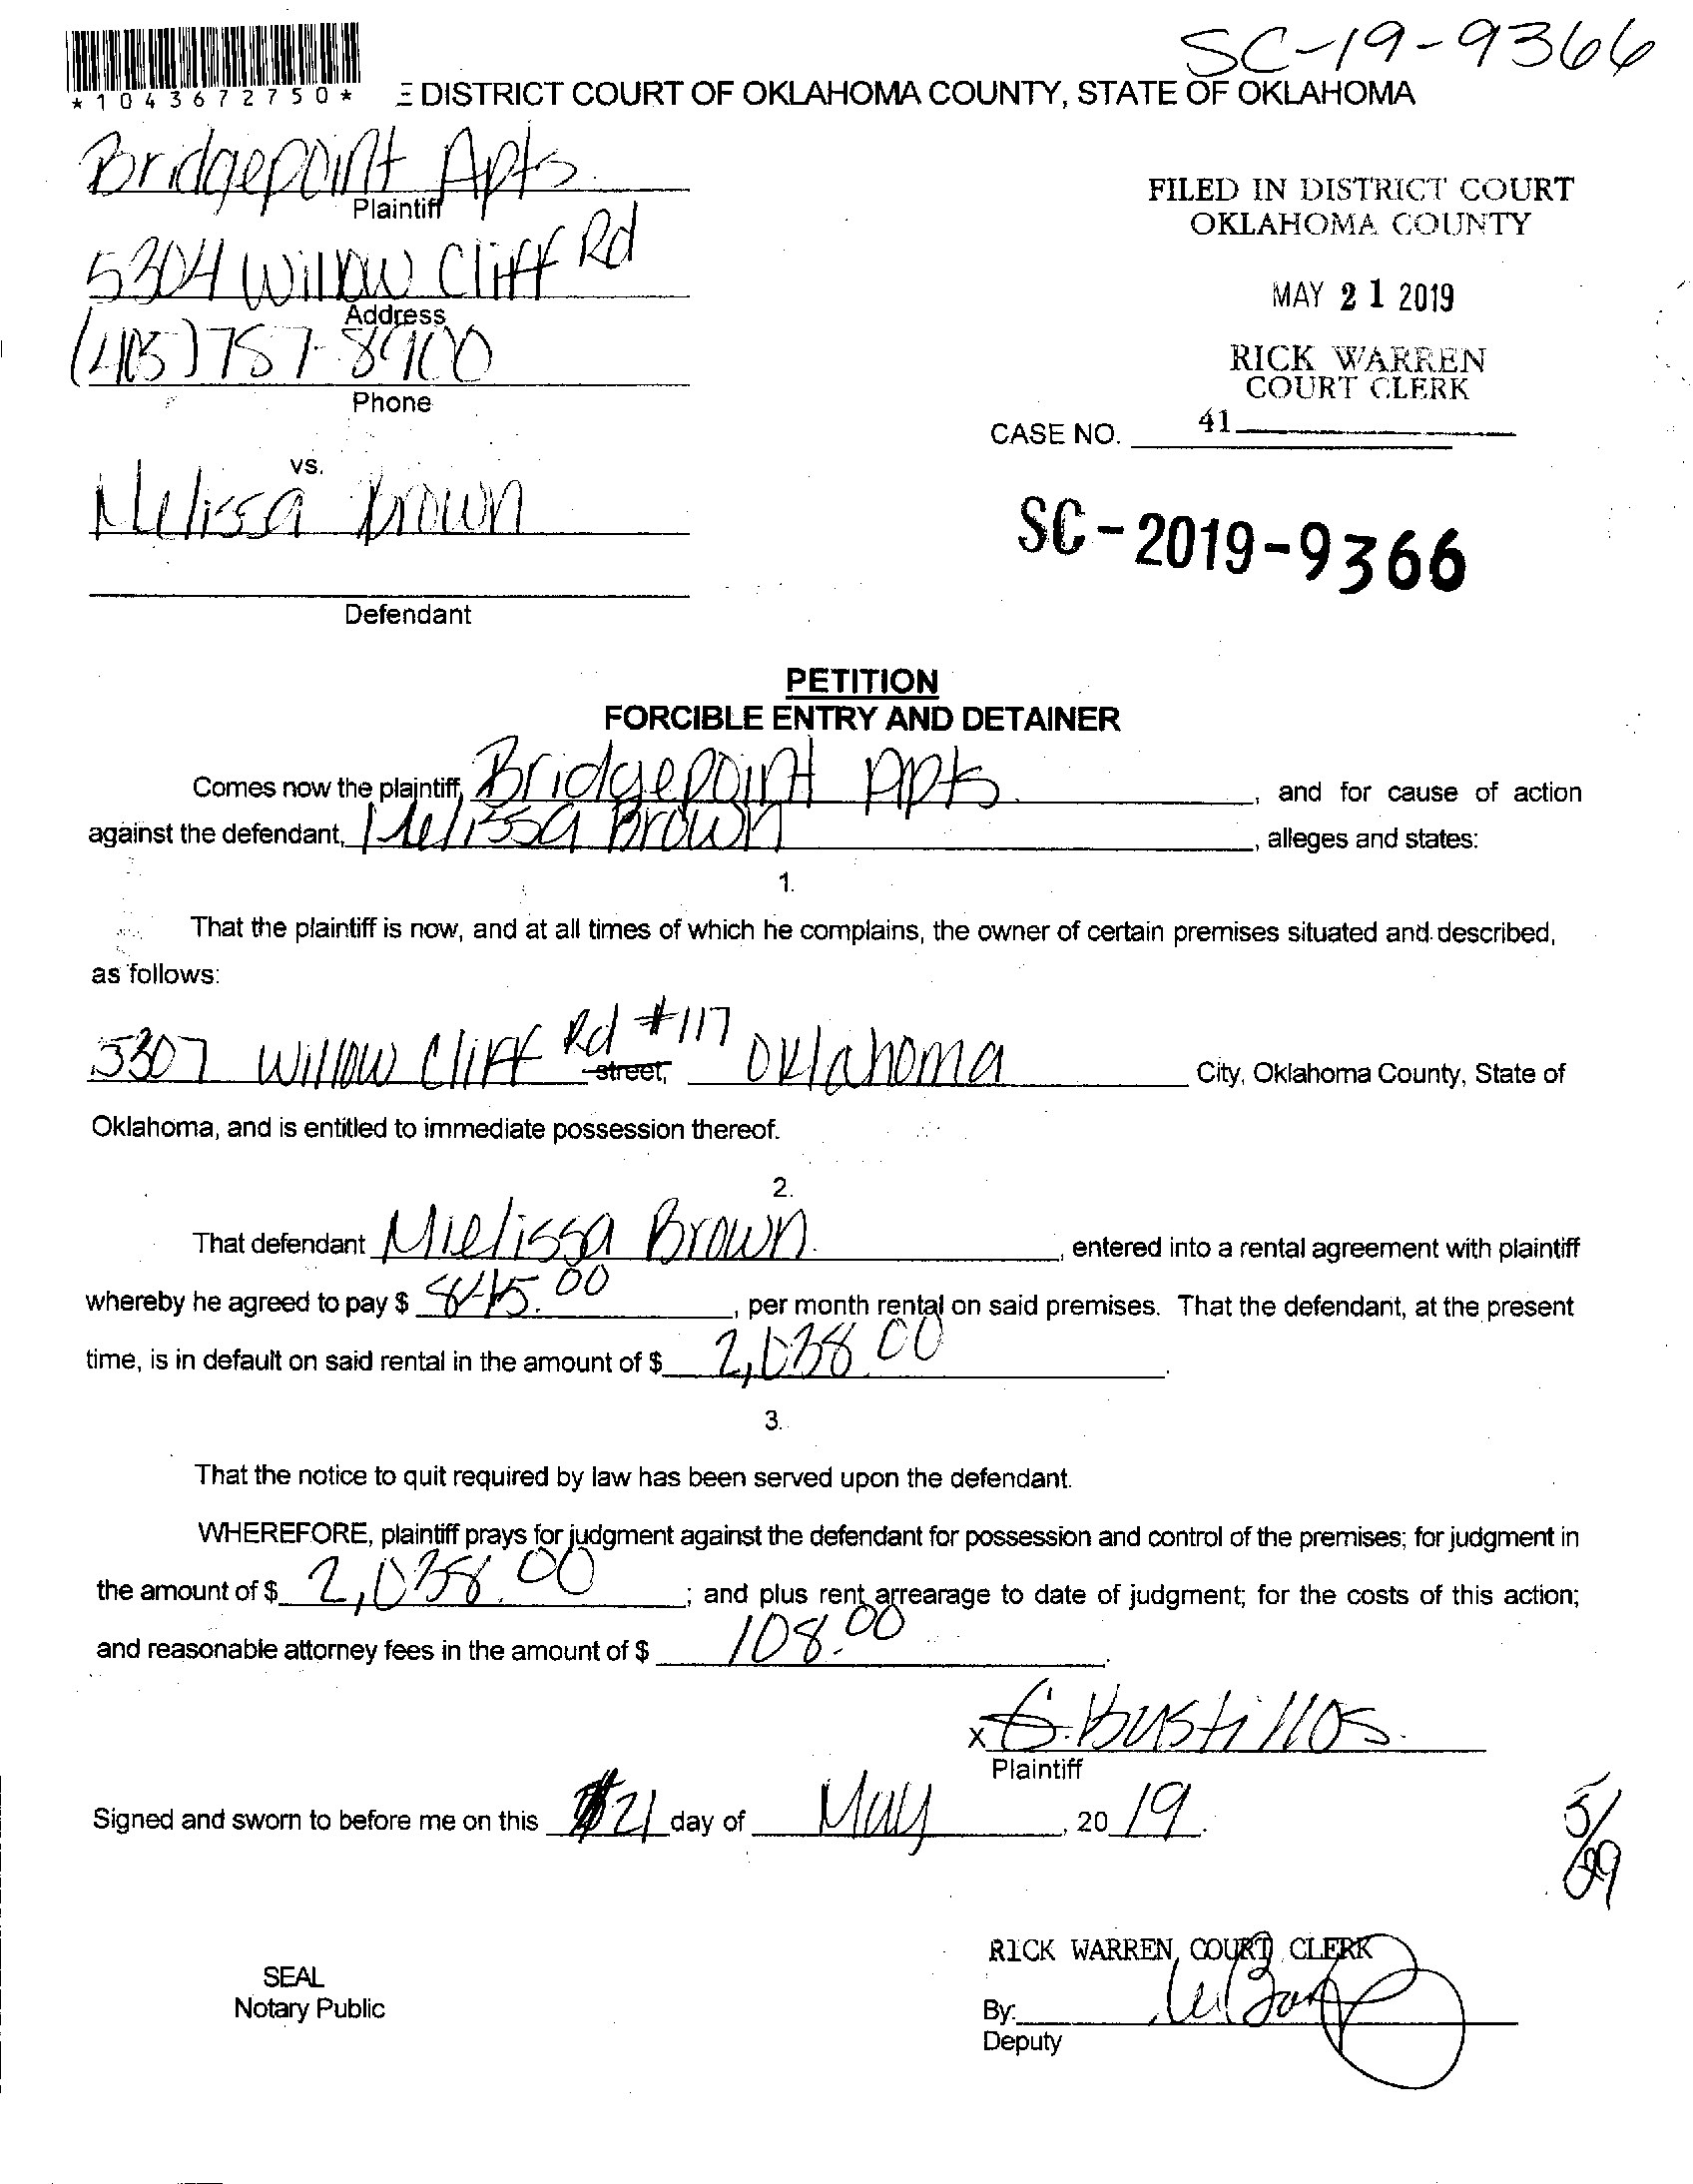 SC-19-9366
*1043672750*
E DISTRICT COURT OF OKLAHOMA COUNTY, STATE OF OKLAHOMA
Bridgepoint Apts.
Plaintiff
5304 Willow Cliff Rd
Address
(405) 757-8900
Phone
vs.
Melissa Brown
Defendant
FILED IN DISTRICT COURT
OKLAHOMA COUNTY
MAY 21 2019
RICK WARREN
COURT CLERK
CASE NO. 41
SC-2019-9366
PETITION
FORCIBLE ENTRY AND DETAINER
Comes now the plaintiff, Bridgepoint Apts., and for cause of action
against the defendant, Melissa Brown, alleges and states:
1.
That the plaintiff is now, and at all times of which he complains, the owner of certain premises situated and described,
as follows:
5307 Willow Cliff Rd #117 street, Oklahoma City, Oklahoma County, State of
Oklahoma, and is entitled to immediate possession thereof.
2.
That defendant Mielissa Brown., entered into a rental agreement with plaintiff
whereby he agreed to pay $ 845.00, per month rental on said premises. That the defendant, at the present
time, is in default on said rental in the amount of $ 2,038.00.
3.
That the notice to quit required by law has been served upon the defendant.
WHEREFORE, plaintiff prays for judgment against the defendant for possession and control of the premises; for judgment in
the amount of $ 2,038.00; and plus rent arrearage to date of judgment; for the costs of this action;
and reasonable attorney fees in the amount of $ 108.00.
x G. Bustillos.
Plaintiff
Signed and sworn to before me on this 21 day of May, 2019.
5/29
RICK WARREN, COURT CLERK
SEAL
Notary Public
By:
Deputy